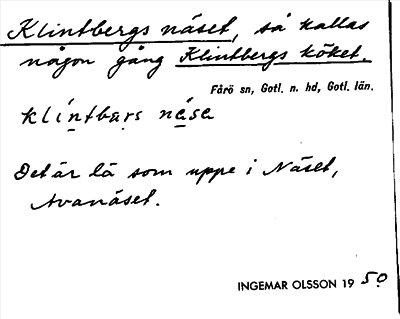 Klintbergs näset, så kallas
någon gång Klintbergs köket.
Fårö sn, Gotl. n. hd, Gotl. län.
klíntbars nása
Det är lä som uppe i Näset,
Avanäset.
INGEMAR OLSSON 19 50